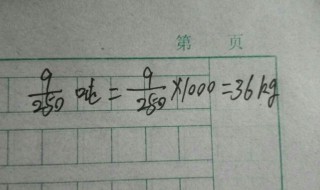 第 页
9/250 吨 = 9/250 ×1000 =36kg